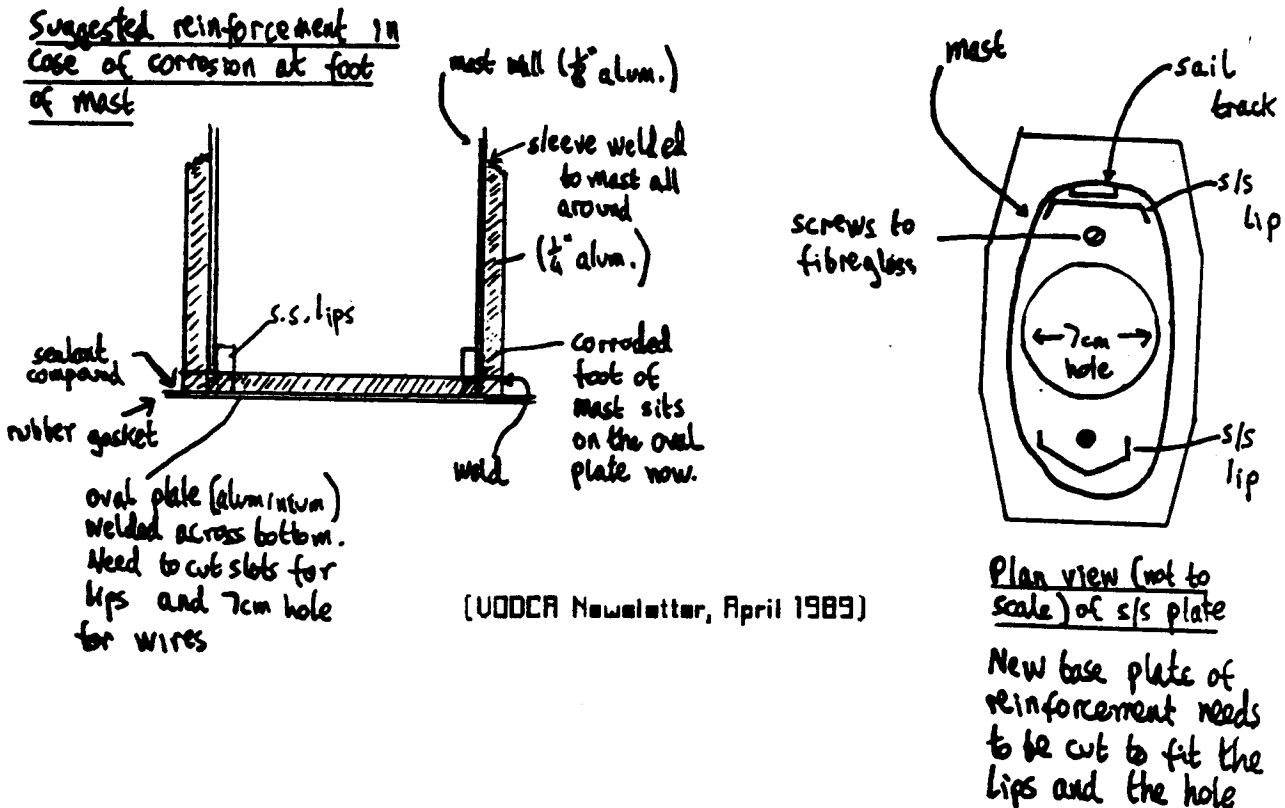 Suggested reinforcement in
case of corrosion at foot
of mast
mast wall (1/8" alum.)
sleeve welded
to mast all
around
(1/4" alum.)
s.s. lips
sealant
compound
rubber gasket
corroded
foot of
mast sits
on the oval
plate now.
weld
oval plate (aluminium)
welded across bottom.
Need to cut slots for
lips and 7cm hole
for wires
(VODCA Newsletter, April 1989)
mast
sail
track
s/s
lip
screws to
fibregloss
7cm
hole
s/s
lip
Plan view (not to
scale) of s/s plate
New base plate of
reinforcement needs
to be cut to fit the
lips and the hole